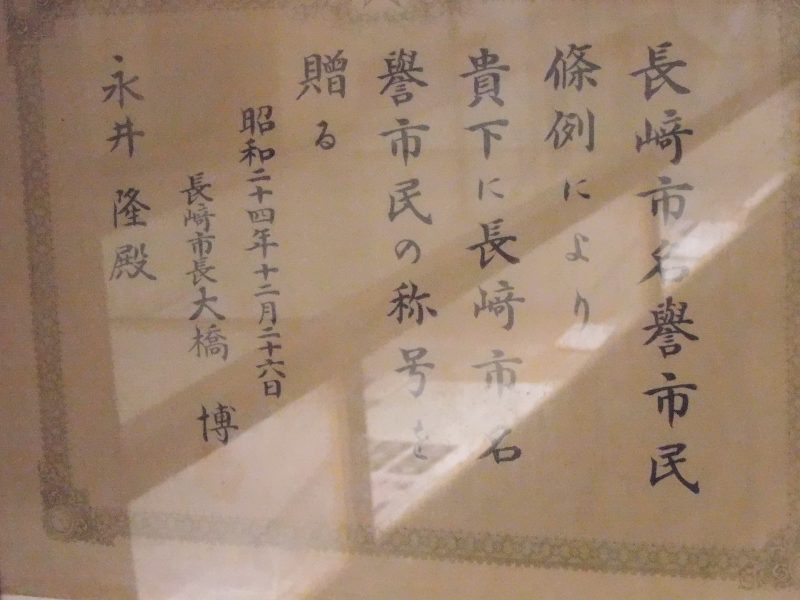 長﨑市名譽市民
條例により
貴下に長﨑市名
譽市民の称号を
贈る
昭和二十四年十二月二十六日
長﨑市長大橋博
永井隆殿